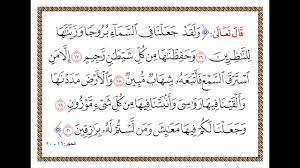 قَالَ تَعَالَى: ﴿ وَلَقَدْ جَعَلْنَا فِي ٱلسَّمَآءِ بُرُوجًا وَزَيَّنَّٰهَا
لِلنَّٰظِرِينَ ۝١٦ وَحَفِظْنَٰهَا مِن كُلِّ شَيْطَٰنٍ رَّجِيمٍ ۝١٧ إِلَّا مَنِ
ٱسْتَرَقَ ٱلسَّمْعَ فَأَتْبَعَهُۥ شِهَابٌ مُّبِينٌ ۝١٨ وَٱلْأَرْضَ مَدَدْنَٰهَا
وَأَلْقَيْنَا فِيهَا رَوَٰسِيَ وَأَنۢبَتْنَا فِيهَا مِن كُلِّ شَىْءٍ مَّوْزُونٍ ۝١٩
وَجَعَلْنَا لَكُمْ فِيهَا مَعَٰيِشَ وَمَن لَّسْتُمْ لَهُۥ بِرَٰزِقِينَ ۝٢٠ ﴾
الحجر: ١٦ - ٢٠